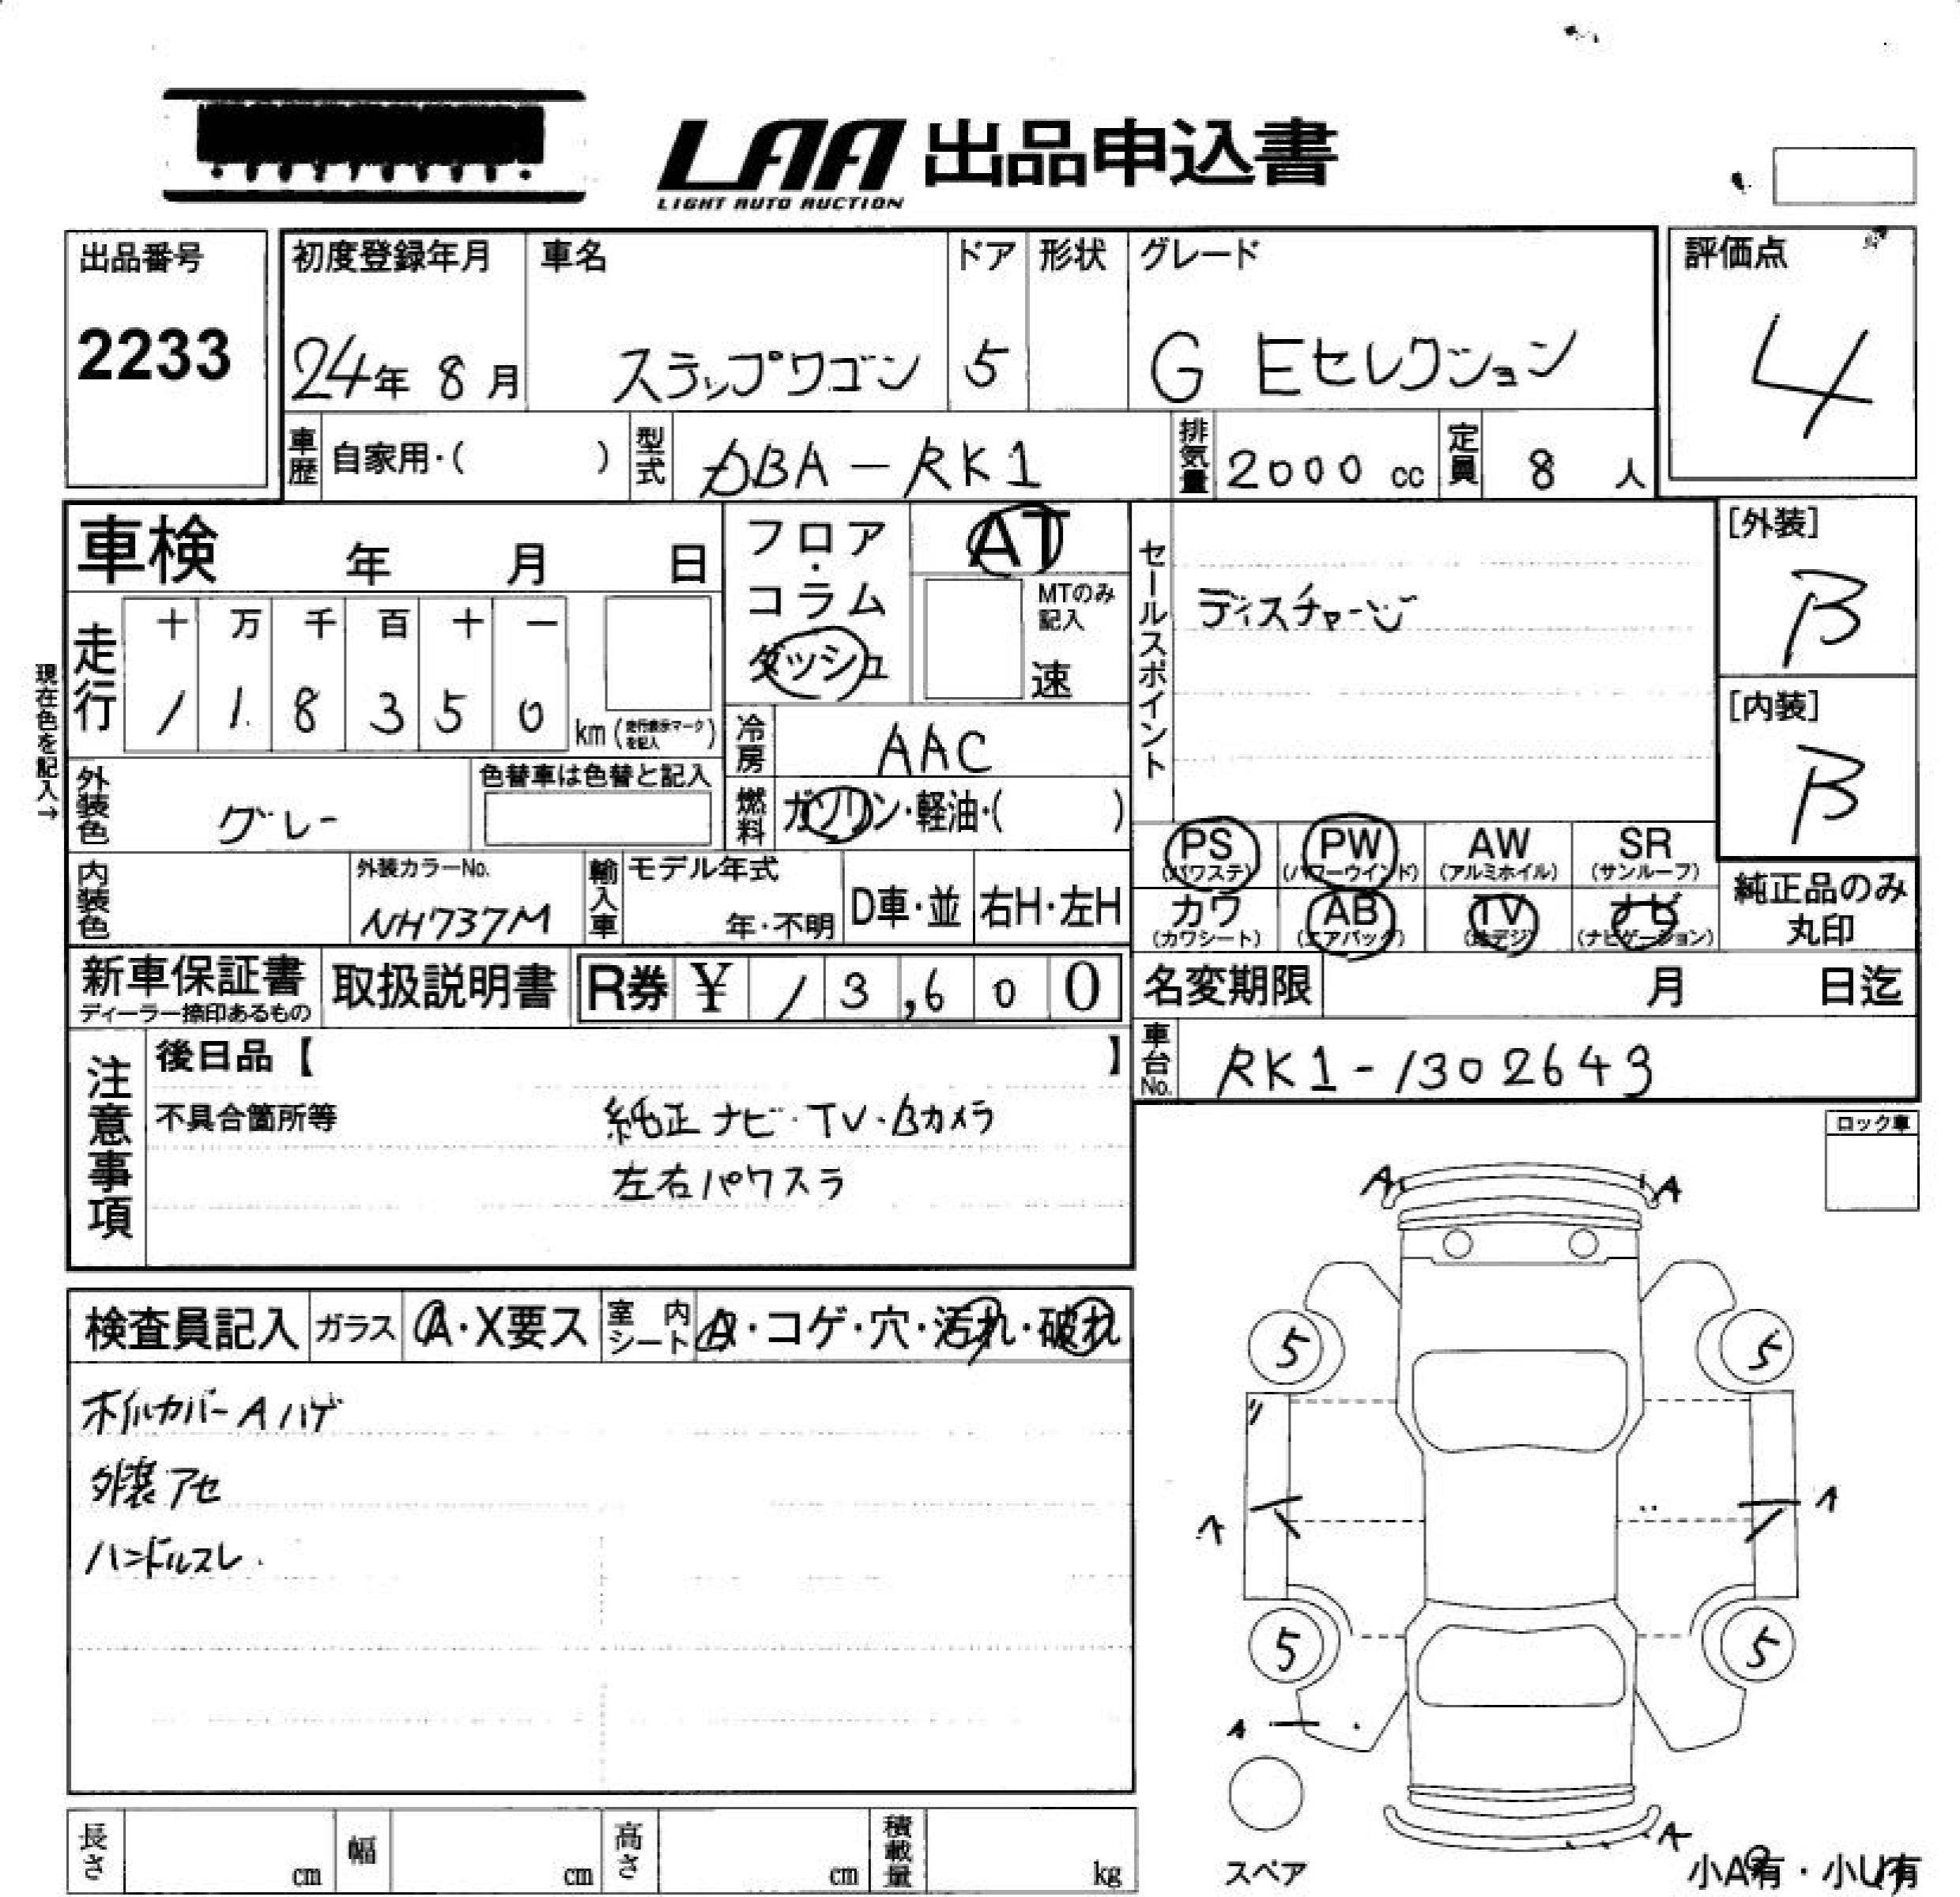 LAA 出品申込書
LIGHT AUTO AUCTION
出品番号
2233
初度登録年月
24年 8月
車名
ステップワゴン
ドア
5
形状
グレード
G Eセレクション
評価点
4
車歴 自家用・( )
型式 DBA-RK1
排気量 2000 cc
定員 8 人
車検 年 月 日
フロア・コラム
ダッシュ
AT
MTのみ記入
速
セールスポイント
ディスチャージ
[外装]
B
[内装]
B
現在色を記入→
走行
十 万 千 百 十 一
1 1 8 3 5 0 km (走行表示マークを記入)
冷房 AAC
外装色 グレー
色替車は色替と記入
燃料 ガソリン・軽油・( )
PS (パワステ)
PW (パワーウインド)
AW (アルミホイル)
SR (サンルーフ)
カワ (カワシート)
AB (エアバッグ)
TV (地デジ)
ナビ (ナビゲーション)
純正品のみ
丸印
内装色
外装カラーNo.
NH737M
輸入車
モデル年式
年・不明
D車・並
右H・左H
新車保証書
ディーラー捺印あるもの
取扱説明書
R券 ¥ 13,600
名変期限 月 日迄
車台No. RK1-1302643
注意事項
後日品【 】
不具合箇所等
純正ナビ・TV・Bカメラ
左右パワスラ
ロック車
A A
検査員記入
ガラス A・X要ス
室内シート A・コゲ・穴・汚れ・破れ
ホイルカバーAハゲ
外装アセ
ハンドルスレ
5 5
A A
5 5
A
A
スペア
小A有・小U有
長さ cm
幅 cm
高さ cm
積載量 kg